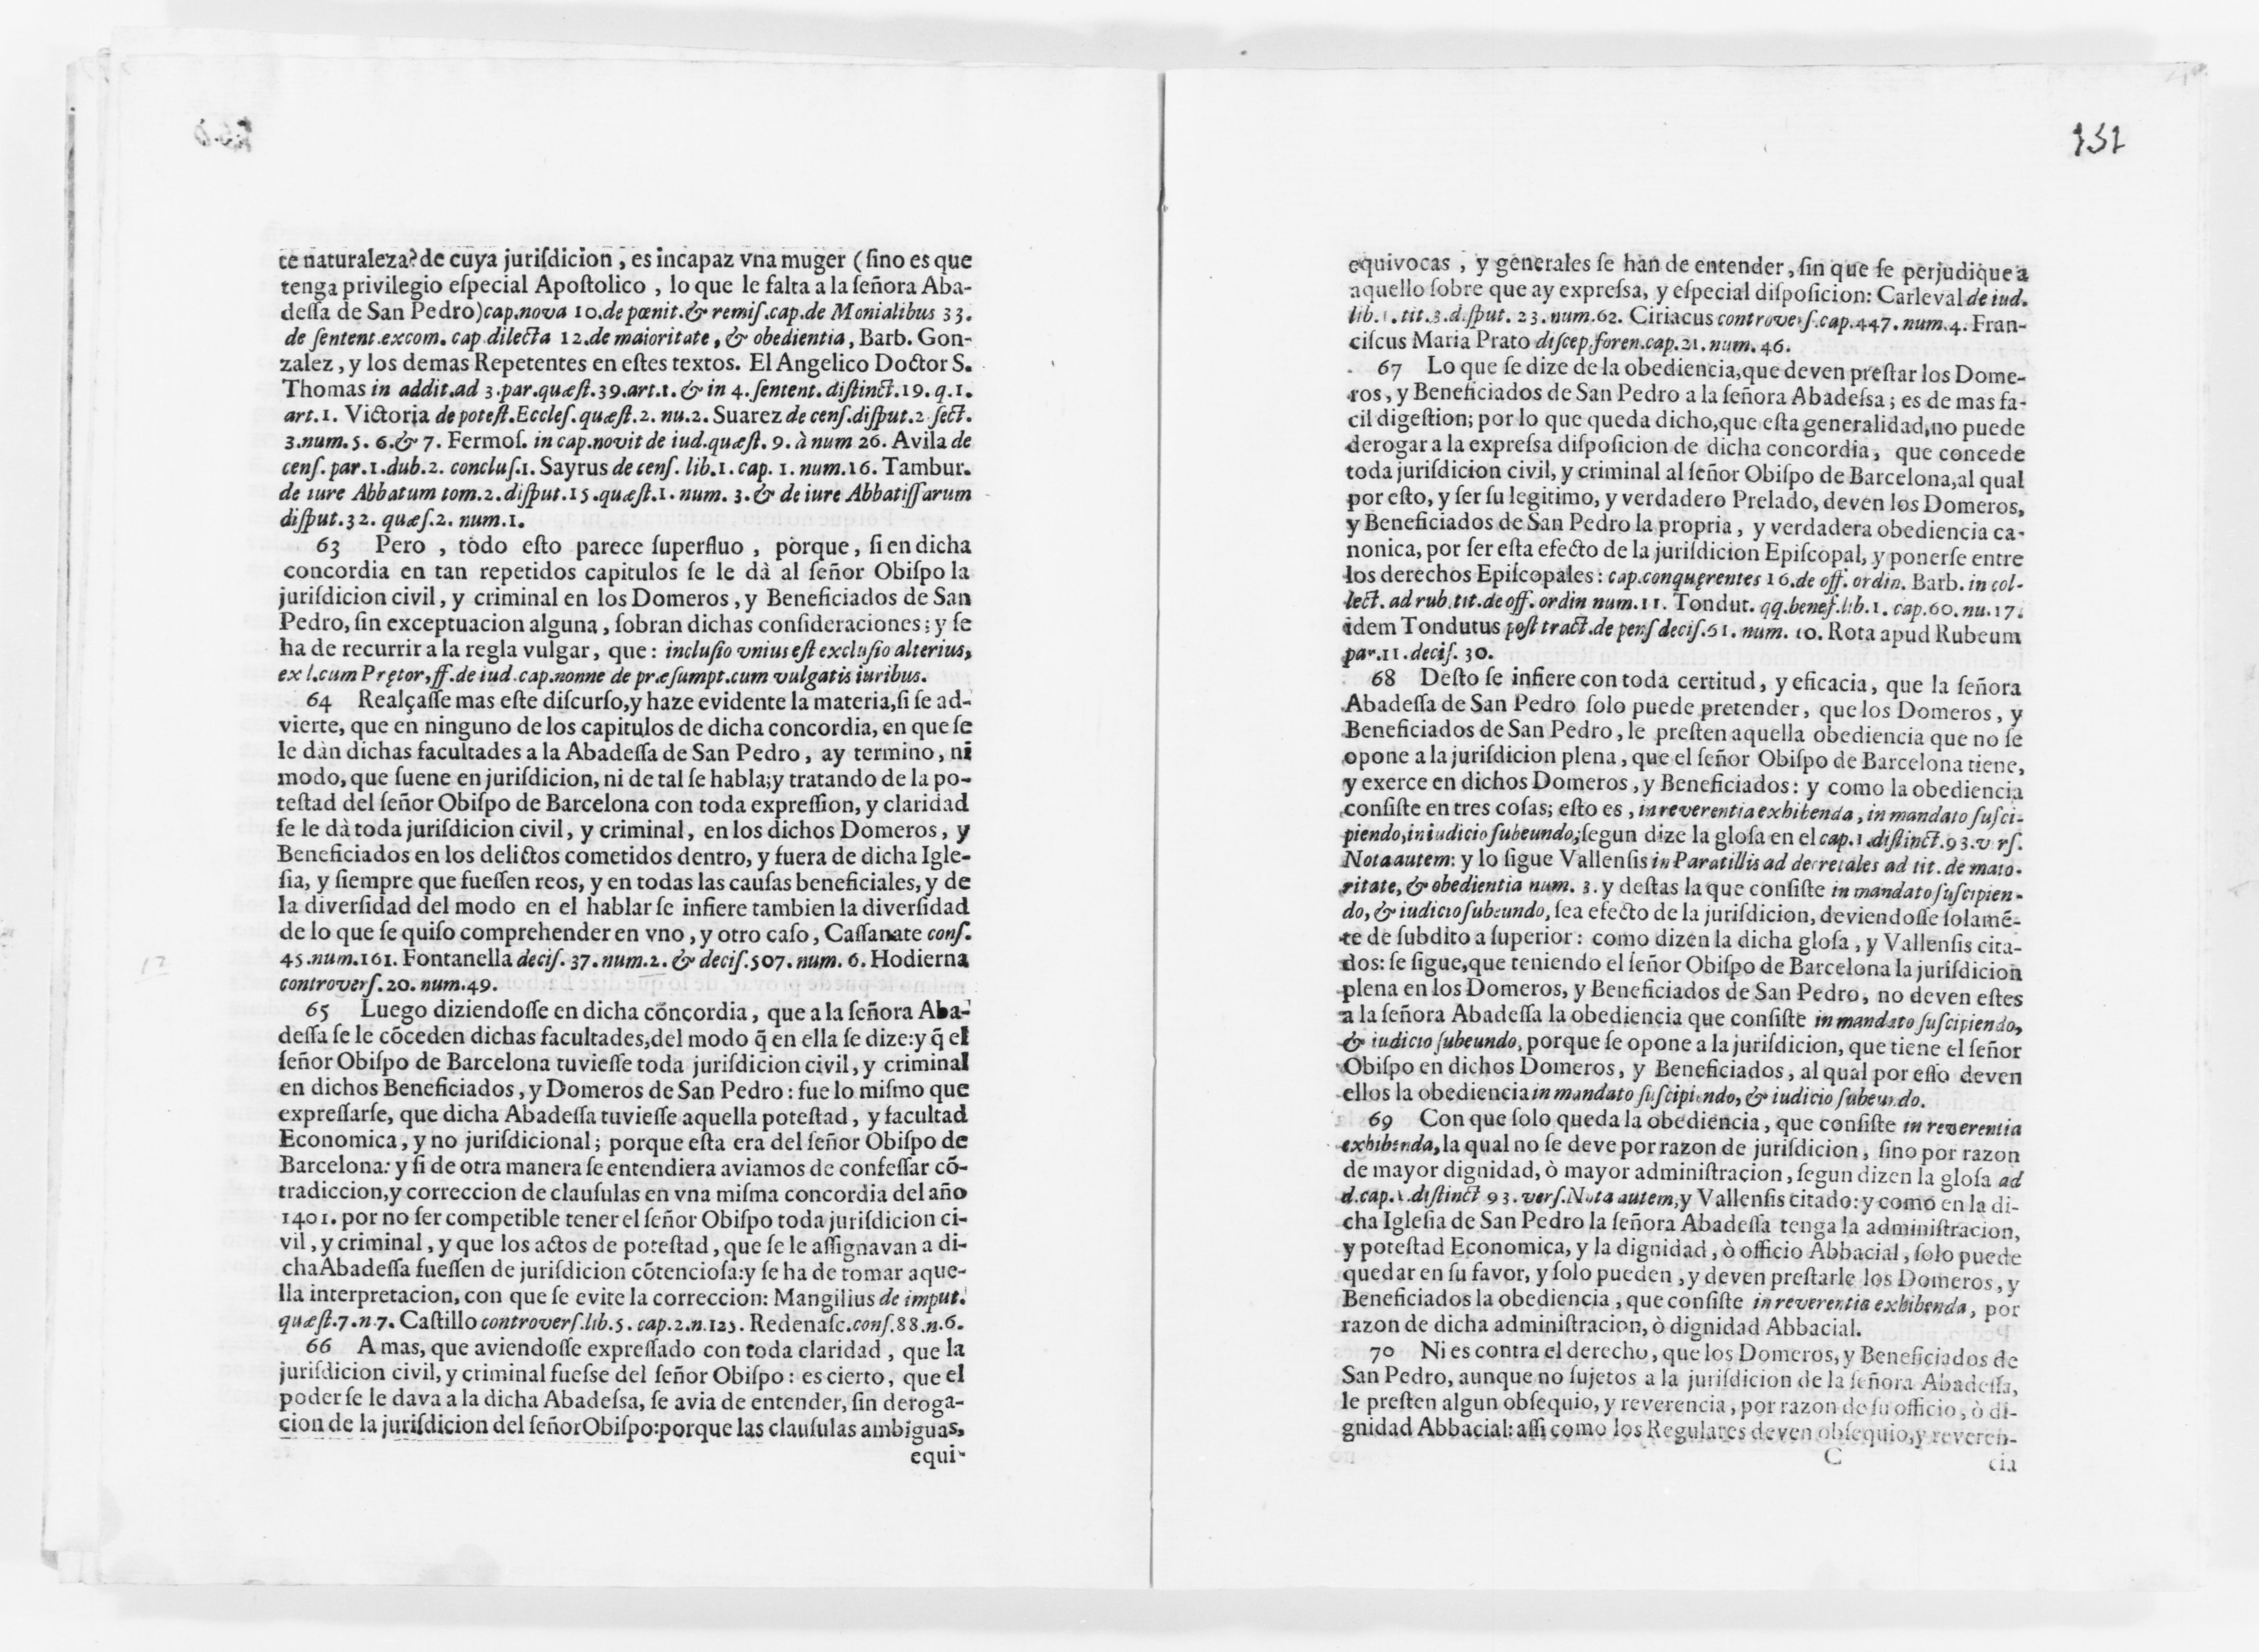 te naturaleza? de cuya juriſdicion, es incapaz vna muger (ſino es que
tenga privilegio eſpecial Apoſtolico, lo que le falta a la ſeñora Aba-
deſſa de San Pedro) cap.nova 10.de pœnit.& remiſ.cap.de Monialibus 33.
de ſentent.excom. cap dilecta 12.de maioritate, & obedientia, Barb. Gon-
zalez, y los demas Repetentes en eſtes textos. El Angelico Doctor S.
Thomas in addit.ad 3.par.quæſt.39.art.1.& in 4.ſentent.diſtinct.19.q.1.
art.1. Victoria de poteſt.Eccleſ.quæſt.2. nu.2. Suarez de cenſ.diſput.2 ſect.
3.num.5. 6.& 7. Fermoſ. in cap.novit de iud.quæſt. 9. à num 26. Avila de
cenſ. par.1.dub.2. concluſ.1. Sayrus de cenſ. lib.1. cap. 1. num.16. Tambur.
de iure Abbatum tom.2.diſput.15.quæſt.1. num. 3.& de iure Abbatiſſarum
diſput.32. quæſ.2. num.1.
63 Pero, todo eſto parece ſuperfluo, porque, ſi en dicha
concordia en tan repetidos capitulos ſe le dà al ſeñor Obiſpo la
juriſdicion civil, y criminal en los Domeros, y Beneficiados de San
Pedro, ſin exceptuacion alguna, ſobran dichas conſideraciones; y ſe
ha de recurrir a la regla vulgar, que: incluſio vnius eſt excluſio alterius,
ex l.cum Prętor, ff.de iud.cap.nonne de præſumpt.cum vulgatis iuribus.
64 Realçaſſe mas eſte diſcurſo, y haze evidente la materia, ſi ſe ad-
vierte, que en ninguno de los capitulos de dicha concordia, en que ſe
le dàn dichas facultades a la Abadeſſa de San Pedro, ay termino, ni
modo, que ſuene en juriſdicion, ni de tal ſe habla; y tratando de la po-
teſtad del ſeñor Obiſpo de Barcelona con toda expreſſion, y claridad
ſe le dà toda juriſdicion civil, y criminal, en los dichos Domeros, y
Beneficiados en los delictos cometidos dentro, y fuera de dicha Igle-
ſia, y ſiempre que fueſſen reos, y en todas las cauſas beneficiales, y de
la diverſidad del modo en el hablar ſe infiere tambien la diverſidad
de lo que ſe quiſo comprehender en vno, y otro caſo, Caſſanate conſ.
45.num.161. Fontanella deciſ. 37.num.2. & deciſ.507. num. 6. Hodierna
controverſ.20. num.49.
65 Luego diziendoſſe en dicha cōncordia, que a la ſeñora Aba-
deſſa ſe le cōceden dichas facultades, del modo q̃ en ella ſe dize: y q̃ el
ſeñor Obiſpo de Barcelona tuvieſſe toda juriſdicion civil, y criminal
en dichos Beneficiados, y Domeros de San Pedro: fue lo miſmo que
expreſſarſe, que dicha Abadeſſa tuvieſſe aquella poteſtad, y facultad
Economica, y no juriſdicional; porque eſta era del ſeñor Obiſpo de
Barcelona: y ſi de otra manera ſe entendiera aviamos de confeſſar cō-
tradiccion, y correccion de clauſulas en vna miſma concordia del año
1401. por no ſer competible tener el ſeñor Obiſpo toda juriſdicion ci-
vil, y criminal, y que los actos de poteſtad, que ſe le aſſignavan a di-
cha Abadeſſa fueſſen de juriſdicion cōtencioſa: y ſe ha de tomar aque-
lla interpretacion, con que ſe evite la correccion: Mangilius de imput.
quæſt.7.n.7. Caſtillo controverſ.lib.5. cap.2.n.123. Redenaſc.conſ.88.n.6.
66 A mas, que aviendoſſe expreſſado con toda claridad, que la
juriſdicion civil, y criminal fueſse del ſeñor Obiſpo: es cierto, que el
poder ſe le dava a la dicha Abadeſsa, ſe avia de entender, ſin deroga-
cion de la juriſdicion del ſeñor Obiſpo: porque las clauſulas ambiguas,
equi-
151
equivocas, y generales ſe han de entender, ſin que ſe perjudique a
aquello ſobre que ay expreſsa, y eſpecial diſpoſicion: Carleval de iud.
lib.1. tit.3.diſput. 23.num.62. Ciriacus controverſ.cap.447.num.4. Fran-
ciſcus Maria Prato diſcep.foren.cap.21.num.46.
67 Lo que ſe dize de la obediencia, que deven preſtar los Dome-
ros, y Beneficiados de San Pedro a la ſeñora Abadeſsa; es de mas fa-
cil digeſtion; por lo que queda dicho, que eſta generalidad, no puede
derogar a la expreſsa diſpoſicion de dicha concordia, que concede
toda juriſdicion civil, y criminal al ſeñor Obiſpo de Barcelona, al qual
por eſto, y ſer ſu legitimo, y verdadero Prelado, deven los Domeros,
y Beneficiados de San Pedro la propria, y verdadera obediencia ca-
nonica, por ſer eſta efecto de la juriſdicion Epiſcopal, y ponerſe entre
los derechos Epiſcopales: cap.conquęrentes 16.de off. ordin. Barb. in col-
lect. ad rub.tit.de off. ordin num.11. Tondut. qq.benef.lib.1. cap.60.nu.17.
idem Tondutus poſt tract.de penſ deciſ.61. num. 10. Rota apud Rubeum
par.11.deciſ. 30.
68 Deſto ſe infiere con toda certitud, y eficacia, que la ſeñora
Abadeſſa de San Pedro ſolo puede pretender, que los Domeros, y
Beneficiados de San Pedro, le preſten aquella obediencia que no ſe
opone a la juriſdicion plena, que el ſeñor Obiſpo de Barcelona tiene,
y exerce en dichos Domeros, y Beneficiados: y como la obediencia
conſiſte en tres coſas; eſto es, in reverentia exhibenda, in mandato ſuſci-
piendo, in iudicio ſubeundo; ſegun dize la gloſa en el cap.1.diſtinct.93.v rſ.
Nota autem: y lo ſigue Vallenſis in Paratillis ad decretales ad tit. de maio-
ritate, & obedientia num. 3. y deſtas la que conſiſte in mandato ſuſcipien-
do, & iudicio ſubeundo, ſea efecto de la juriſdicion, deviendoſſe ſolamē-
te de ſubdito a ſuperior: como dizen la dicha gloſa, y Vallenſis cita-
dos: ſe ſigue, que teniendo el ſeñor Obiſpo de Barcelona la juriſdicion
plena en los Domeros, y Beneficiados de San Pedro, no deven eſtes
a la ſeñora Abadeſſa la obediencia que conſiſte in mandato ſuſcipiendo,
& iudicio ſubeundo, porque ſe opone a la juriſdicion, que tiene el ſeñor
Obiſpo en dichos Domeros, y Beneficiados, al qual por eſſo deven
ellos la obediencia in mandato ſuſcipiendo, & iudicio ſubeundo.
69 Con que ſolo queda la obediencia, que conſiſte in reverentia
exhibenda, la qual no ſe deve por razon de juriſdicion, ſino por razon
de mayor dignidad, ò mayor adminiſtracion, ſegun dizen la gloſa ad
d.cap.1.diſtinct 93.verſ.Nota autem, y Vallenſis citado: y como en la di-
cha Igleſia de San Pedro la ſeñora Abadeſſa tenga la adminiſtracion,
y poteſtad Economica, y la dignidad, ò officio Abbacial, ſolo puede
quedar en ſu favor, y ſolo pueden, y deven preſtarle los Domeros, y
Beneficiados la obediencia, que conſiſte in reverentia exhibenda, por
razon de dicha adminiſtracion, ò dignidad Abbacial.
70 Ni es contra el derecho, que los Domeros, y Beneficiados de
San Pedro, aunque no ſujetos a la juriſdicion de la ſeñora Abadeſſa,
le preſten algun obſequio, y reverencia, por razon de ſu officio, ò di-
gnidad Abbacial: aſſi como los Regulares deven obſequio, y reveren-
C cia